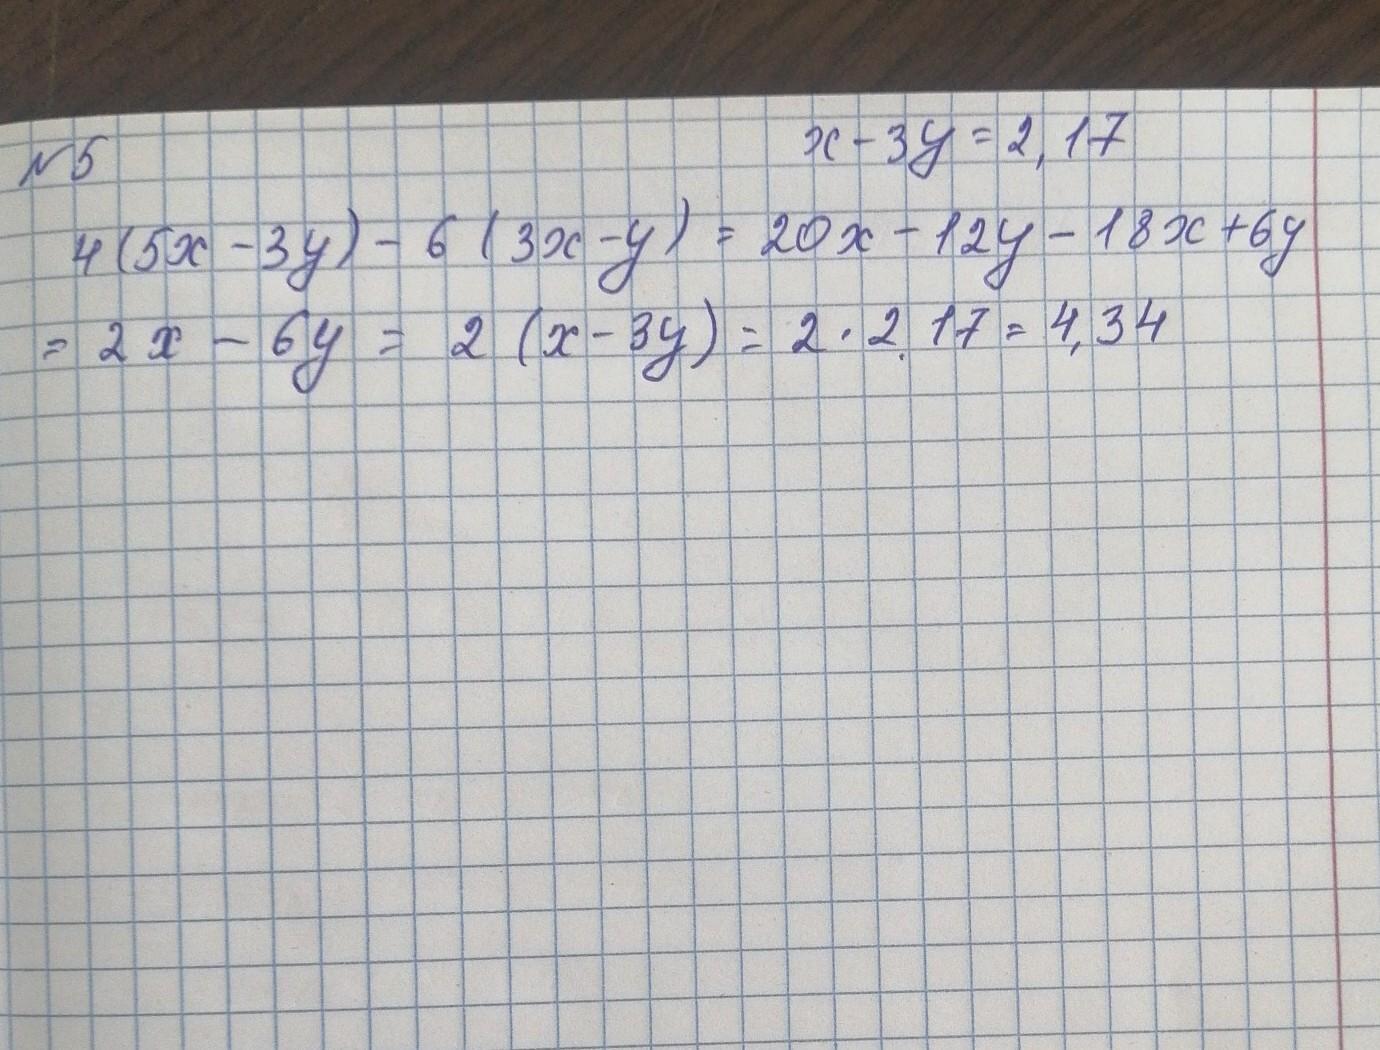 №5 x - 3y = 2,17
4(5x - 3y) - 6(3x - y) = 20x - 12y - 18x + 6y
= 2x - 6y = 2(x - 3y) = 2 · 2,17 = 4,34